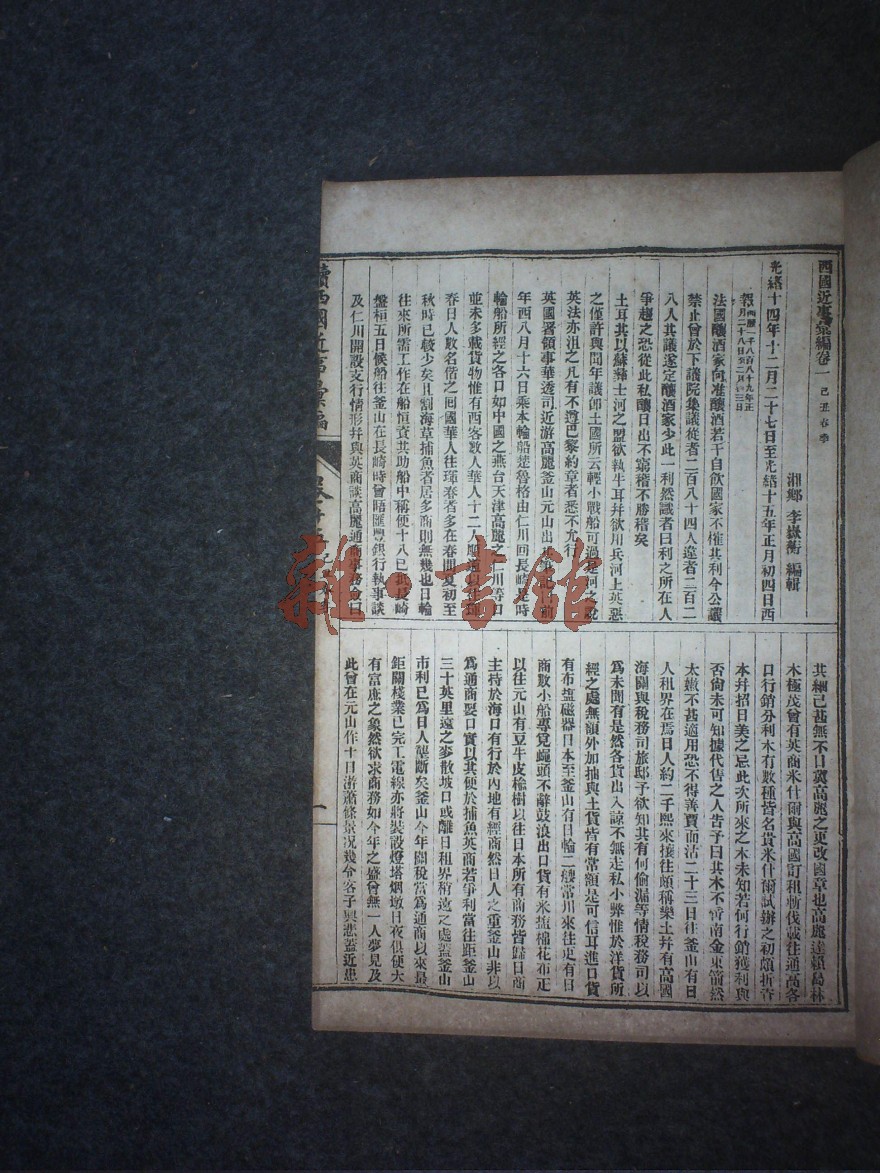 西國近事彙編卷一 己丑春季
湘鄉 李嶽衡 編輯
光緒十四年十二月二十七日至光緒十五年正月初四日西
報西曆一千八百八十九年正
月二十八日至二月初三日
法國釀酒家向准釀酒若干自飲國家不榷其利今公議
禁止曾於下議院集議從者二百八十四人違者二百二
八人其議遂定釀酒家少此一利然識者曰利之所在人
爭趨之恐從此私釀日出不窮稽不勝稽矣
土耳其以蘇彝士河之盟欲執牛耳并欲用兵河上英惡
之僅許與聞年議即土國所云輕小戰船可過河之說
英法亦沮之凡有不遵巴黎約章者悉不允行
英國署領事華透司近游高麗釜山元山出入
年西八月十六日乘本輪船楚魯格由仁川回長崎是時
輪船所經之各口如中國之燕台天津高麗之仁川等口
並未多載貨物惟有西客數人華人十二人
春日人數名偕之回國華人往琿春者多在春間夏初至
秋時已較少矣且割海草捕魚者居多商則無幾也日輪
往來所需工作在船恒資其助船中稱便十八已抵長崎
盤桓五日候船往釜山在長崎時曾晤匯豐銀行執事談
及仁川開設支行情形并與英商談高麗通商事務僉曰
其細已甚無不日冀高麗之更改國章也高麗達賴島林
木極茂曾有英商米什爾與高國訂租斬伐載往通商各
口行銷分利木有數種皆名貴米什爾試辦之初頗折資
本并招日美之忌此次所來之木未知若何行銷獲利與
否尙未可知據代售之人告予曰其木不啻南金東箭然
太嫩不甚適用恐不得善賈而沽二十三日往釜山有日
人租界在焉日人約二千熙來攘往頗稱樂土并有高國
海關與稅務司旅邸予欲知其有何偷漏等情稅務司以
爲未聞有是然各貨出入諒不無走私小弊惟於洋貨所
經之處無額外加抽與土貨皆有常額是可信耳進口貨
有布鹽磁器日本至釜山有日輪二艘常川來往更有日
商數小船專覓蠅頭不辭鼓浪出口貨有米鹽棉花布疋
以往元山有豆牛皮榆樹以往日本所有商務皆歸日商
主持於海口有行於內地有經商然日人之重釜山非以
爲通商聚口實以其便於捕魚英商若爭利當往距釜山
三十英里遠之麥散坡口或離日租界稍遠之處蓋釜山
市利已爲日人壟斷矣釜山今年關稅當爲通商以來最
鉅關棧業已完工電線亦將裝設燈塔烟墩日夜俱便大
有富庶之象然欲求商務如今年之盛曾無一人夢見及
此曾在元山作十日游蕭條景况幾令客子興悲蓋近患
續西國近事彙編
一
雜·書館